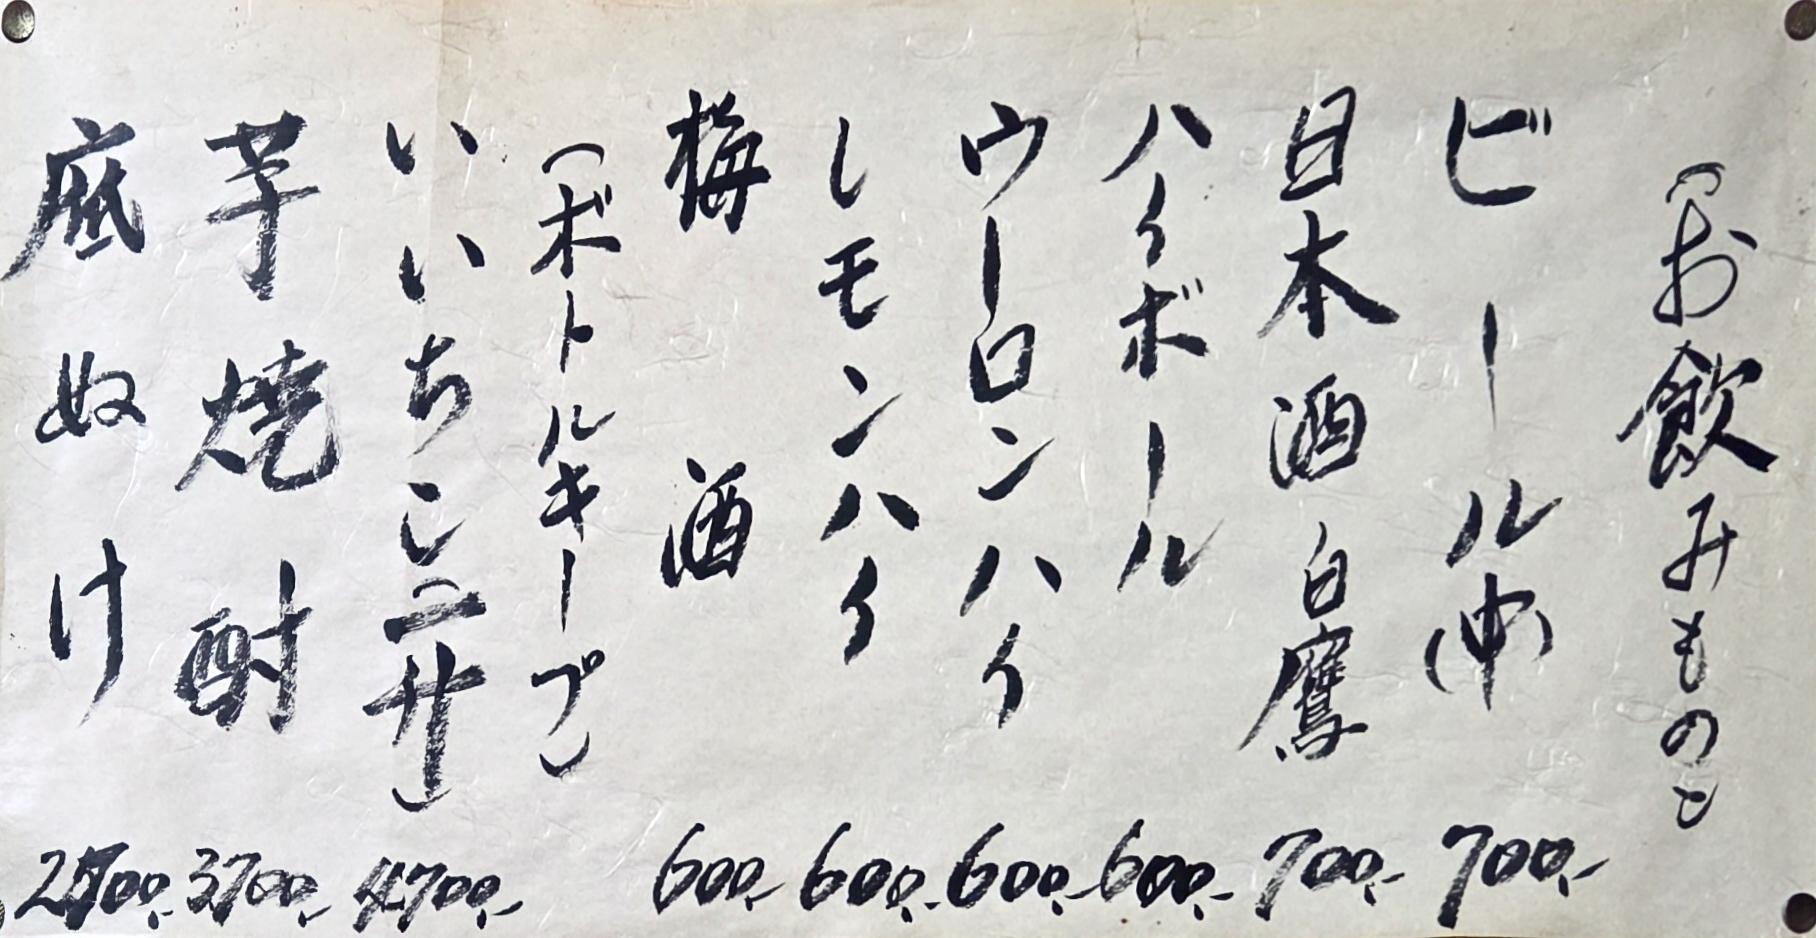 (お飲みもの)
ビール(中) 700.-
日本酒 白鷹 700.-
ハイボール 600.-
ウーロンハイ 600.-
レモンハイ 600.-
梅酒 600.-
(ボトルキープ)
いいちこ(二升) 4700.-
芋焼酎 3700.-
底ぬけ